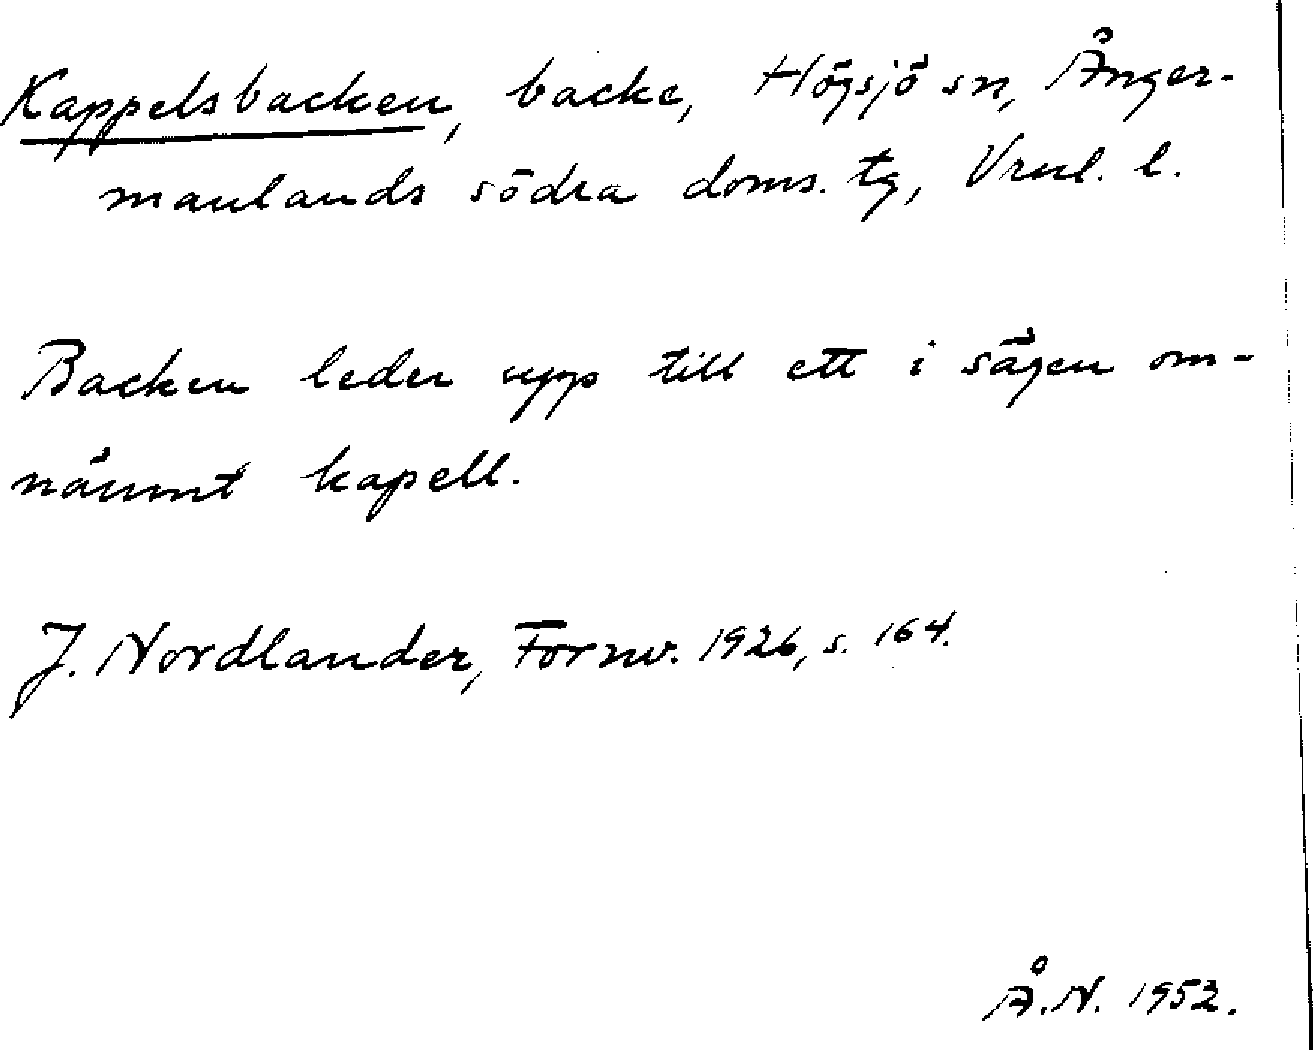 Kappelsbacken, backe, Högsjö sn, Ånger-
manlands södra doms. tg, Vrnl. l.
Backen leder upp till ett i sägen om-
nämnt kapell.
J. Nordlander, Fornv. 1926, s. 164.
Å.N. 1952.